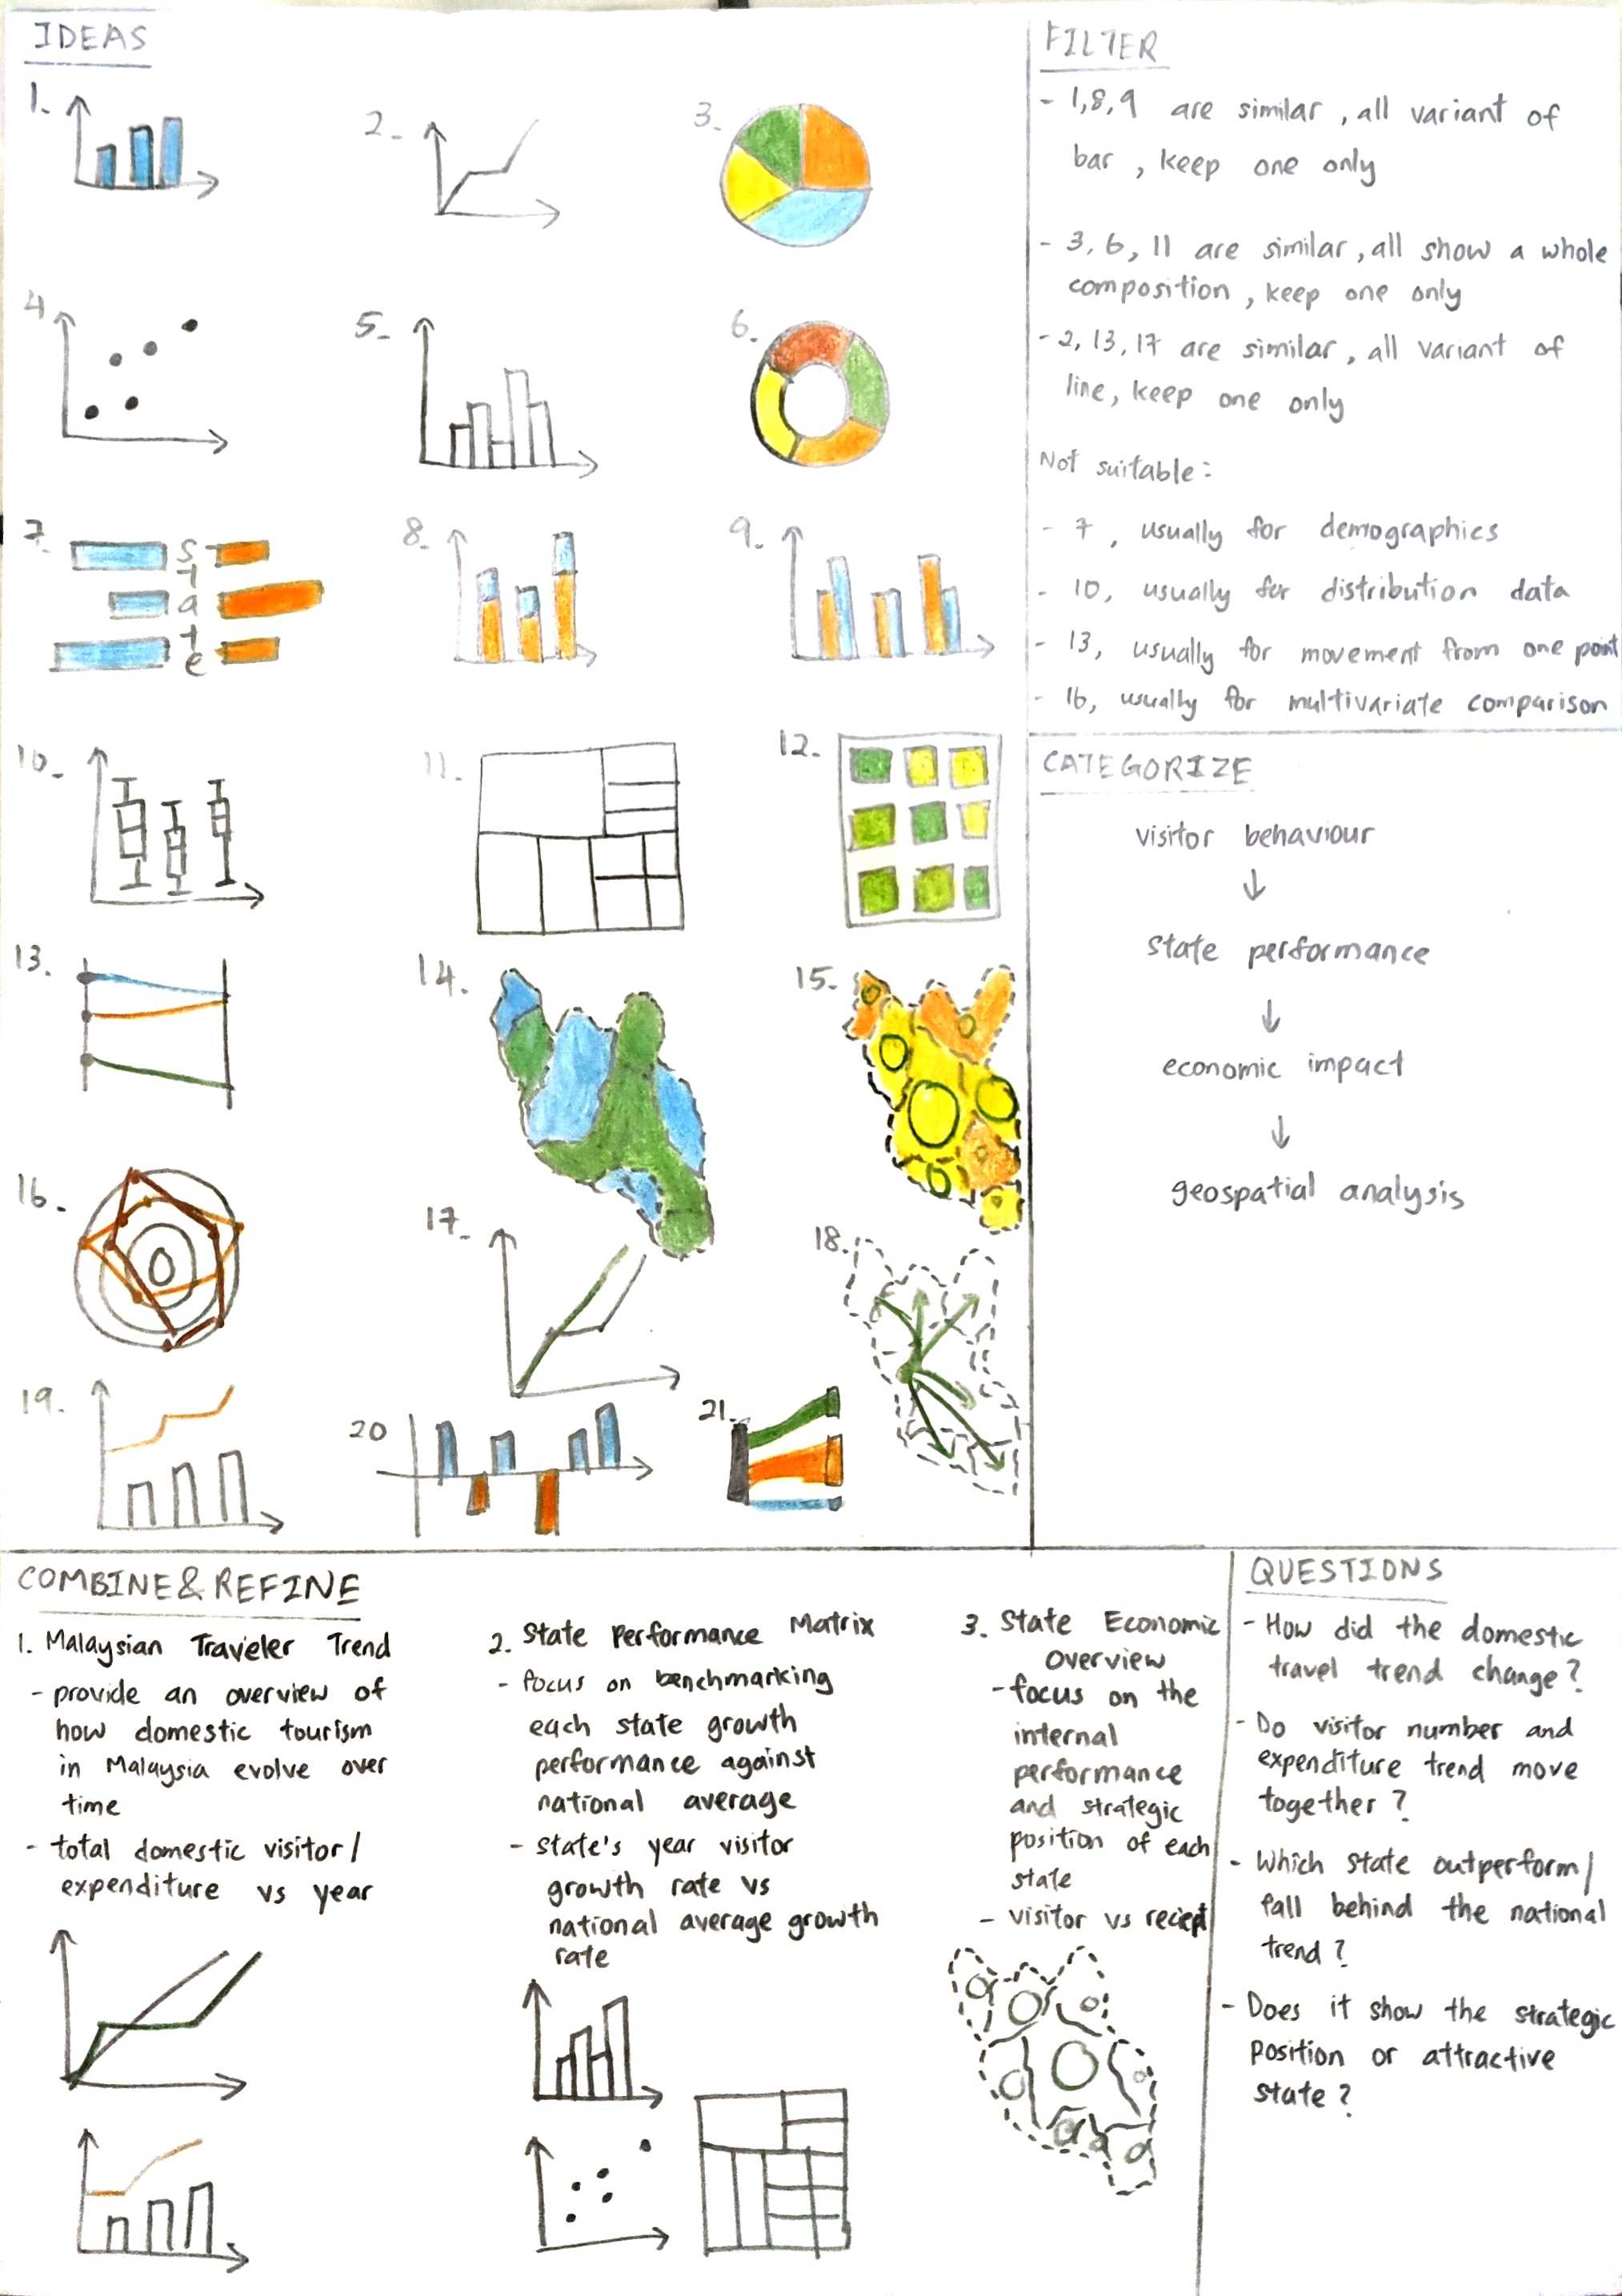 IDEAS
1.
2-
3.
4
5-
6.
7.
S
t
a
t
e
8.
9.
10-
11.
12.
13.
14.
15.
16.
17.
18.
19.
20
21.
FILTER
- 1,8,9 are similar, all variant of
bar, keep one only
- 3, 6, 11 are similar, all show a whole
composition, keep one only
- 2, 13, 17 are similar, all variant of
line, keep one only
Not suitable:
- 7, usually for demographics
- 10, usually for distribution data
- 13, usually for movement from one point
- 16, usually for multivariate comparison
CATEGORIZE
visitor behaviour
↓
state performance
↓
economic impact
↓
geospatial analysis
COMBINE & REFINE
1. Malaysian Traveler Trend
- provide an overview of
how domestic tourism
in Malaysia evolve over
time
- total domestic visitor/
expenditure vs year
2. State Performance Matrix
- focus on benchmarking
each state growth
performance against
national average
- state's year visitor
growth rate vs
national average growth
rate
3. State Economic
Overview
- focus on the
internal
performance
and strategic
position of each
state
- visitor vs reciept
QUESTIONS
- How did the domestic
travel trend change?
- Do visitor number and
expenditure trend move
together?
- Which state outperform/
fall behind the national
trend?
- Does it show the strategic
position or attractive
state?